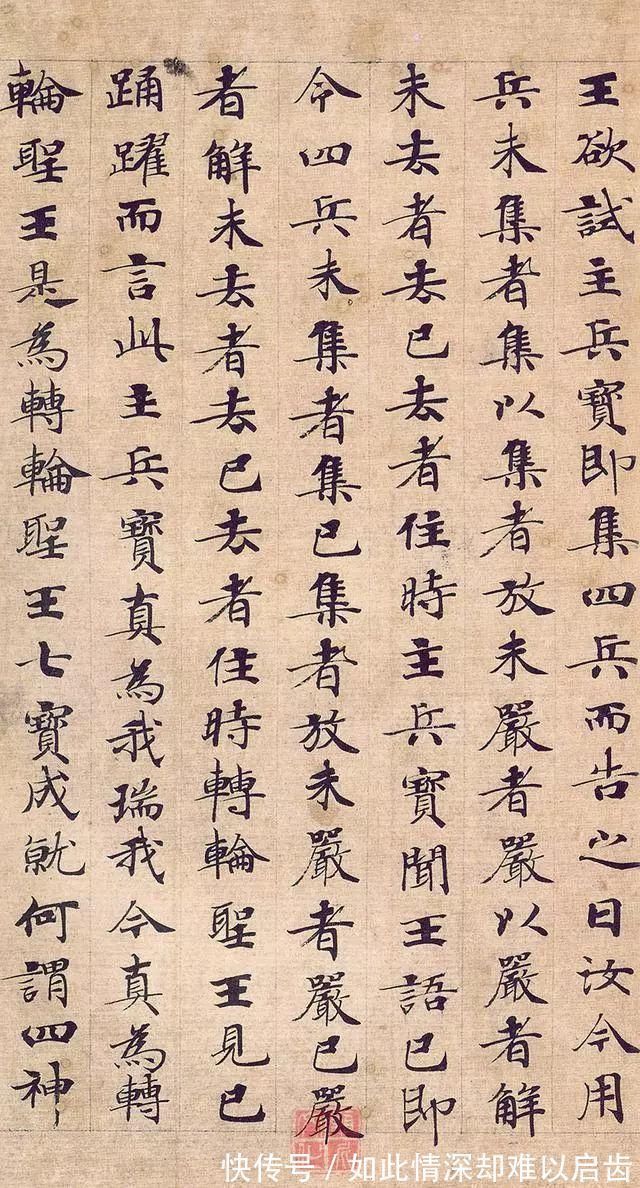 王欲試主兵寶即集四兵而告之曰汝今用
兵未集者集以集者放未嚴者嚴以嚴者解
未去者去已去者住時主兵寶聞王語已即
今四兵未集者集已集者放未嚴者嚴已嚴
者解未去者去已去者住時轉輪聖王見已
踊躍而言此主兵寶真為我瑞我今真為轉
輪聖王是為轉輪聖王七寶成就何謂四神
快传号/如此情深却难以启齿